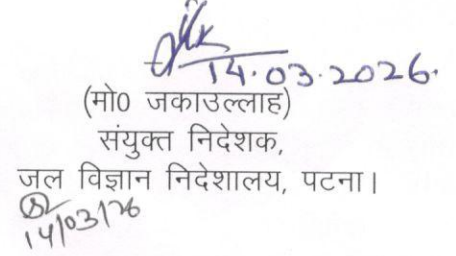 14.03.2026.
(मो0 जकाउल्लाह)
संयुक्त निदेशक,
जल विज्ञान निदेशालय, पटना।
14/03/26